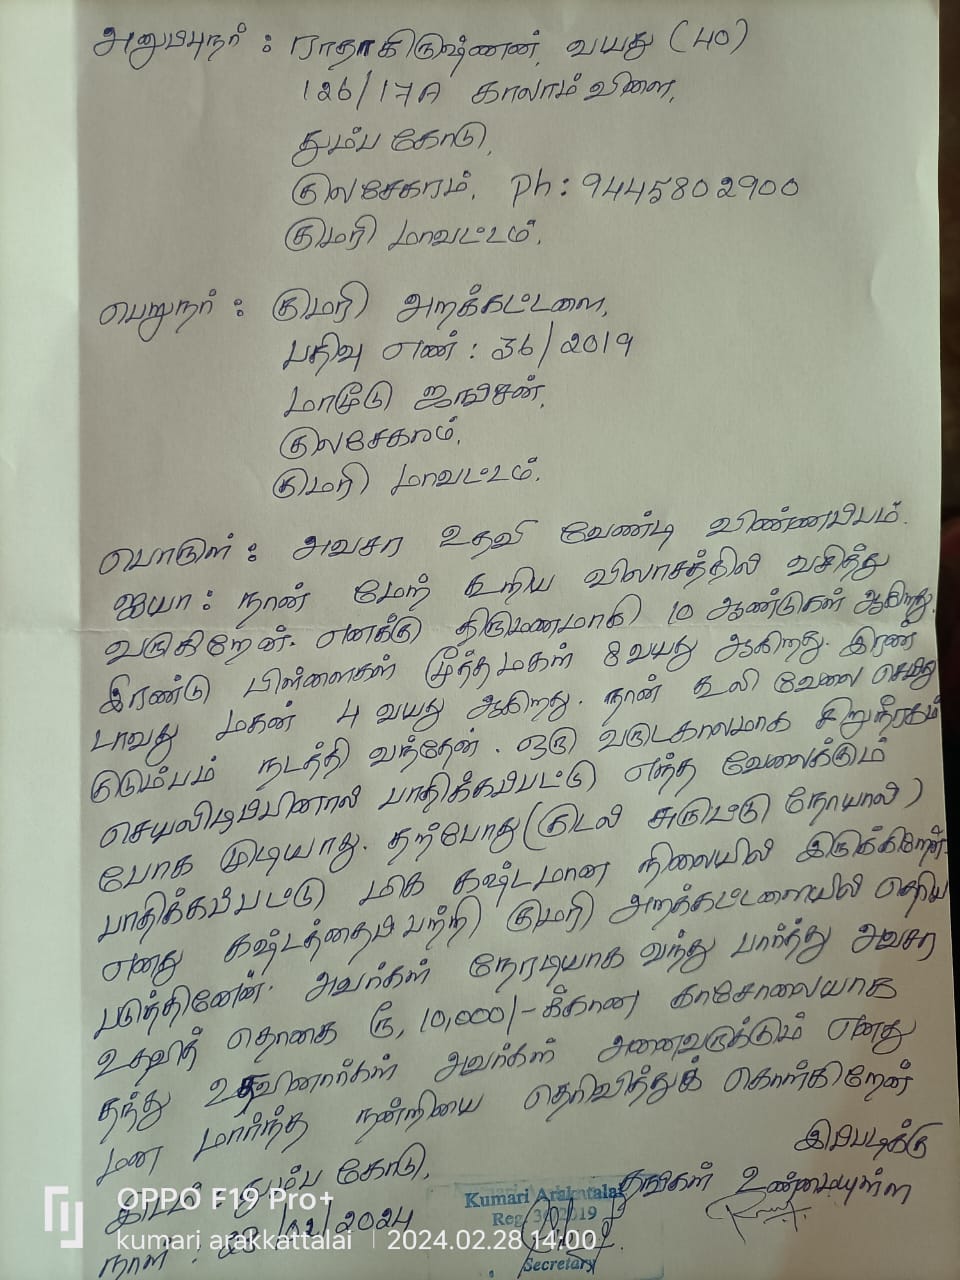 அனுப்புநர் : ராதாகிருஷ்ணன், வயது (40)
126/17A காலாம் விளை,
தும்பகோடு,
குலசேகரம், Ph : 9445802900
குமரி மாவட்டம்.
பெறுநர் : குமரி அறக்கட்டளை,
பதிவு எண் : 36/2019
மாமூடு ஜங்சன்,
குலசேகரம்,
குமரி மாவட்டம்.
பொருள் : அவசர உதவி வேண்டி விண்ணப்பம்.
ஐயா : நான் மேற் கூறிய விலாசத்தில் வசித்து
வருகிறேன். எனக்கு திருமணமாகி 10 ஆண்டுகள் ஆகிறது.
இரண்டு பிள்ளைகள் மூத்த மகள் 8 வயது ஆகிறது. இரண்
டாவது மகன் 4 வயது ஆகிறது. நான் கூலி வேலை செய்து
குடும்பம் நடத்தி வந்தேன். ஒரு வருடகாலமாக சிறுநீரகம்
செயலிழப்பினால் பாதிக்கப்பட்டு எந்த வேலைக்கும்
போக முடியாது. தற்போது (குடல் சுருட்டு நோயால்)
பாதிக்கப்பட்டு மிக கஷ்டமான நிலையில் இருக்கிறேன்.
எனது கஷ்டத்தைப் பற்றி குமரி அறக்கட்டளையில் தெரிய
படுத்தினேன். அவர்கள் நேரடியாக வந்து பார்த்து அவசர
உதவித் தொகை ரூ, 10,000/- க்கான காசோலையாக
தந்து உதவினார்கள் அவர்கள் அனைவருக்கும் எனது
மன மார்ந்த நன்றியை தெரிவித்துக் கொள்கிறேன்
இப்படிக்கு
இடம் : தும்பகோடு,
தங்கள் உண்மையுள்ள
நாள் : 28/02/2024
Kumari Arakattalai
Reg. 36/2019
Secretary
OPPO F19 Pro+
kumari arakkattalai | 2024.02.28 14:00